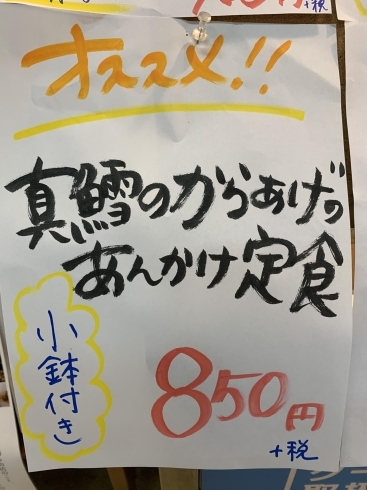 オススメ!!
真鱈のからあげの
あんかけ定食
小鉢付き
850円
+税